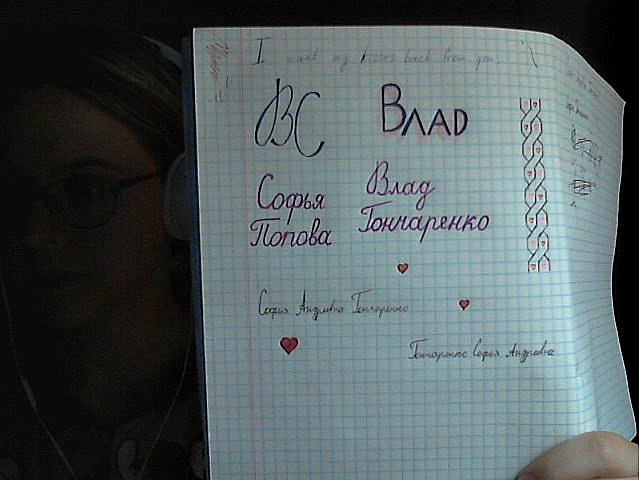 I want my kisses back from you.
ВС
Влад
Софья
Попова
Влад
Гончаренко
София Андреевна Гончаренко
Гончаренко Софья Андреевна